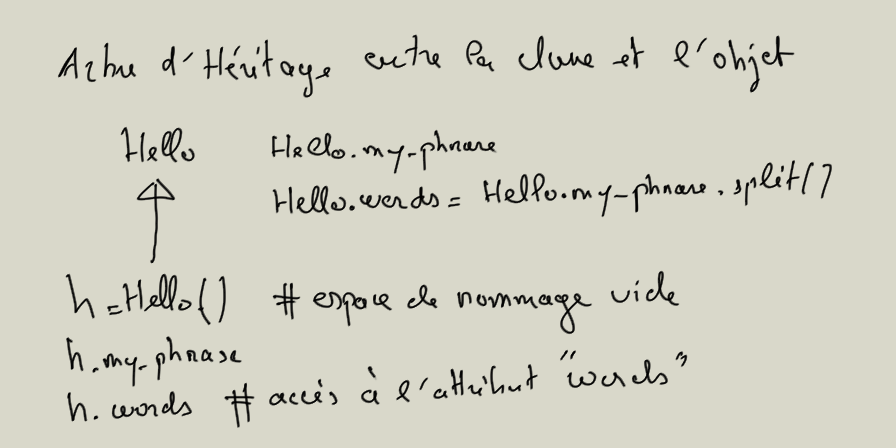 Arbre d'Héritage entre la classe et l'objet
Hello Hello.my-phrase
Hello.words = Hello.my-phrase.split()
h = Hello() # espace de nommage vide
h.my-phrase
h.words # accès à l'attribut "words"